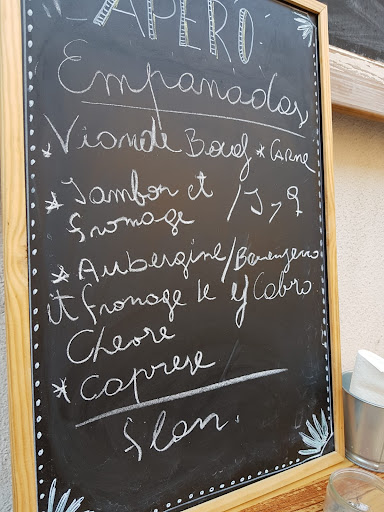 APERO
Empanadas
* Viande Boeuf * CARNE
* Jambon et / J y Q
fromage
* Aubergine / Berenjena
et fromage de y Cabra
Chevre
* Caprese
flan.